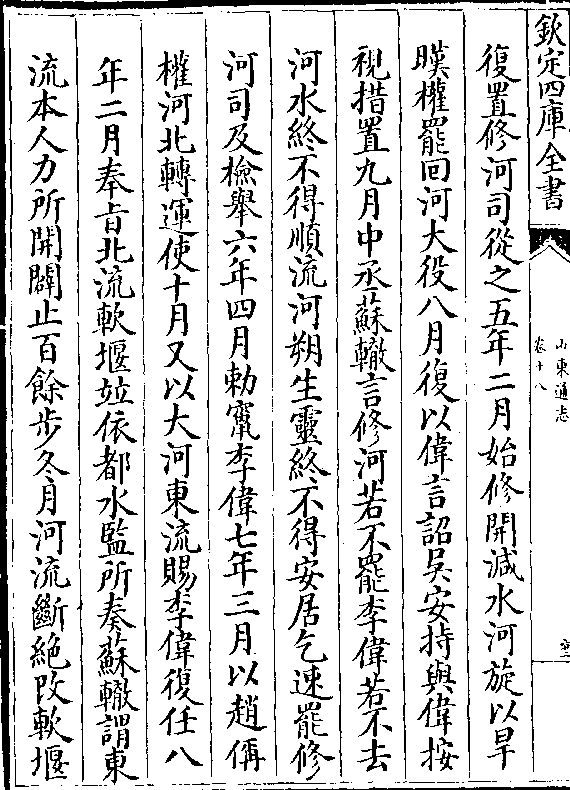 欽定四庫全書
山東通志
卷十八
六二
復置修河司從之五年二月始修開減水河旋以旱
暵權罷回河大役八月復以偉言詔吳安持與偉按
視措置九月中丞蘇轍言修河若不罷李偉若不去
河水終不得順流河朔生靈終不得安居乞速罷修
河司及檢舉六年四月勅竄李偉七年三月以趙偁
權河北轉運使十月又以大河東流賜李偉復任八
年二月奉㫖北流軟堰竝依都水監所奏蘇轍謂東
流本人力所開闢止百餘步冬月河流斷絶故軟堰